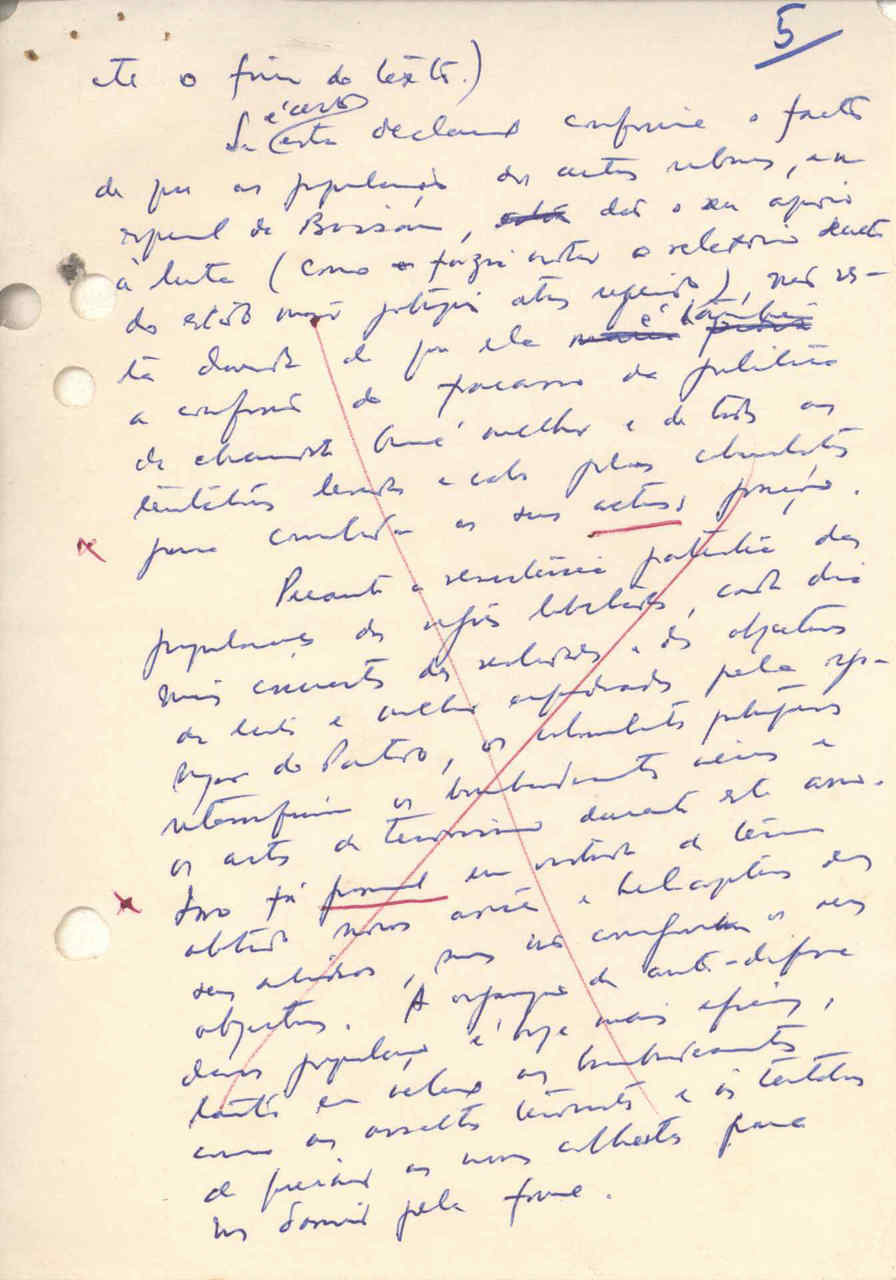 5
ate o fim do texto.)
é certo
Se esta declaração confirma o facto
de que as populações dos centros urbanos, em
especial de Bissau, dão o seu apoio
à luta (como o fazia notar o relatório secreto
do estado maior português atrás referido), não res-
ta dúvida de que ela é também
a confissão do fracasso da política
da chamada Guiné melhor e de todas as
tentativas levadas a cabo pelos colonialistas
para consolidar as suas actuais posições.
Perante a resistência patriótica das
populações das regiões libertadas, cada dia
mais conscientes das realidades e dos objectivos
da luta e melhor enquadradas pela
do Partido, os colonialistas portugueses
intensificam os bombardeamentos aéreos e
os actos de terrorismo durante este ano.
Isso foi possível em virtude de terem
obtido novos aviões e helicópteros dos
seus aliados, mas não conseguiram os seus
objectivos. A organização da auto-defesa
das populações é hoje mais eficaz,
tanto em relação aos bombardeamentos
como aos assaltos terroristas e às tentativas
de queimar as nossas colheitas para
nos dominar pela fome.